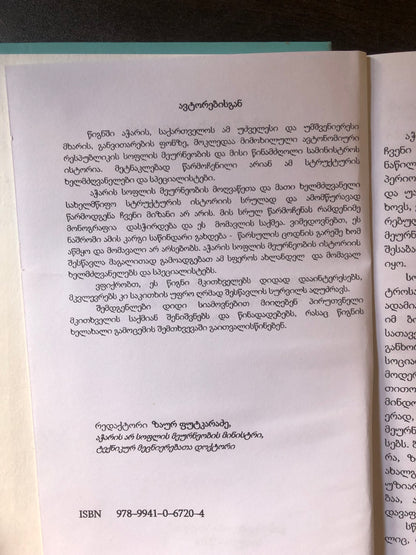 ავტორებისგან
წიგნში აჭარის, საქართველოს ამ უძველესი და უმშვენიერესი
მხარის, განვითარების ფონზე, მოკლედაა მიმოხილული ავტონომიური
რესპუბლიკის სოფლის მეურნეობის და მისი წინამძღოლი სამინისტროს
ისტორია. მეტნაკლებად წარმოჩენილი არიან ამ სტრუქტურის
ხელმძღვანელები და სპეციალისტები.
აჭარის სოფლის მეურნეობის მოღვაწეთა და მათი ხელმძღვანელი
სახელმწიფო სტრუქტურის ისტორიის სრულად და ამომწურავად
წარმოდგენა ჩვენი მიზანი არ არის. მის სრულ წარმოჩენას რამდენიმე
მონოგრაფია დასჭირდება და ეს მომავლის საქმეა. ვიმედოვნებთ, ეს
ნაშრომი ამის კარგი საწინდარი გახდება - წარსულის ცოდნის გარეშე ხომ
აწმყო და მომავალი არ არსებობს. აჭარის სოფლის მეურნეობის ისტორიის
შესწავლა მაგალითად გამოადგებათ ამ სფეროს ახლანდელ და მომავალ
ხელმძღვანელებს და სპეციალისტებს.
ვფიქრობთ, ეს წიგნი მკითხველებს დიდად დააინტერესებს,
მკვლევრებს კი საკითხის უფრო ღრმად შესწავლის სურვილს აღუძრავს.
შემდგენლები დიდი სიამოვნებით მიიღებენ პირუთვნელი
მკითხველის საქმიან შენიშვნებს და წინადადებებს, რასაც წიგნის
ხელახალი გამოცემის შემთხვევაში გაითვალისწინებენ.
რედაქტორი ზაურ ფუტკარაძე,
აჭარის არ სოფლის მეურნეობის მინისტრი,
ტექნიკურ მეცნიერებათა დოქტორი
ISBN 978-9941-0-6720-4
ჩვენი
ნაწილ
პერიო
და უ
ხოვს,
რებუ
მეურნ
შესაბა
იყო.
ტროსა
ადამი
იმ ბი
სათავე
განხო
სოცია
მოდერ
თითო
მინდო
ერად,
მეურნ
სებს.
რა, ზ
ახალგ
უზიარ
ბაა, ა
დავაფ
ლიც,